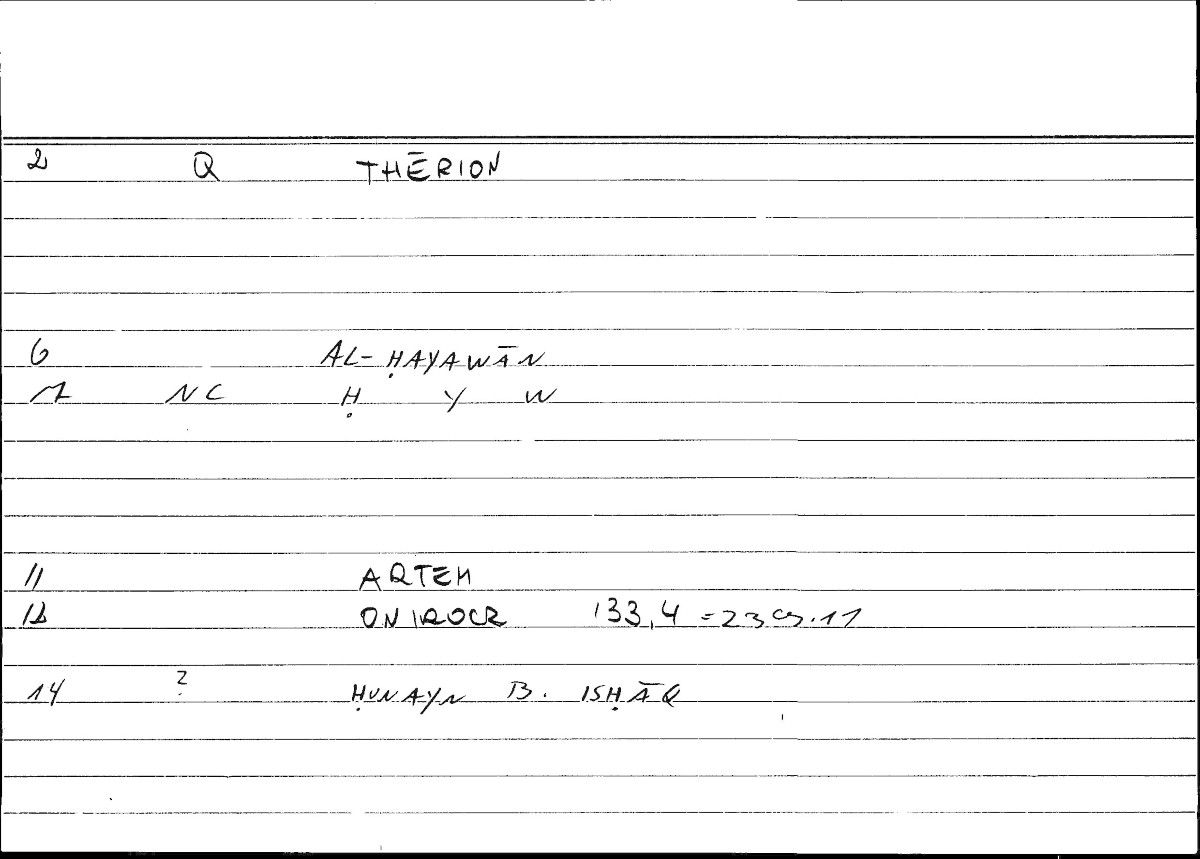 2 Q THĒRION
6 AL-ḤAYAWĀN
7 NC Ḥ Y W
11 ARTEM
12 ONIROCR 133,4 = 239.11
14 ? ḤUNAYN B. ISḤĀQ